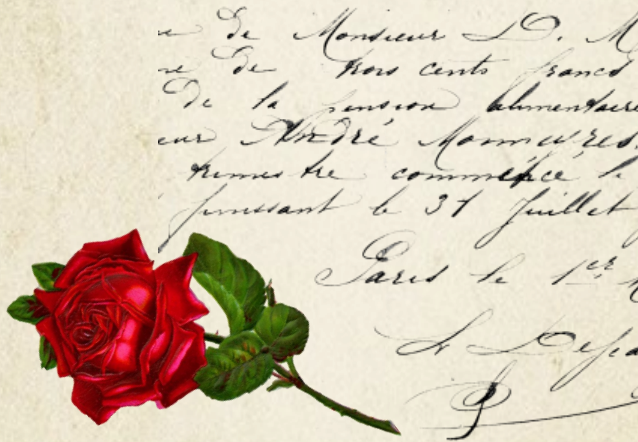 de Monsieur D. M
de trois cents francs
De la pension alimentaire
eur André
trimestre commencé le
finissant le 31 Juillet
Paris le 1er